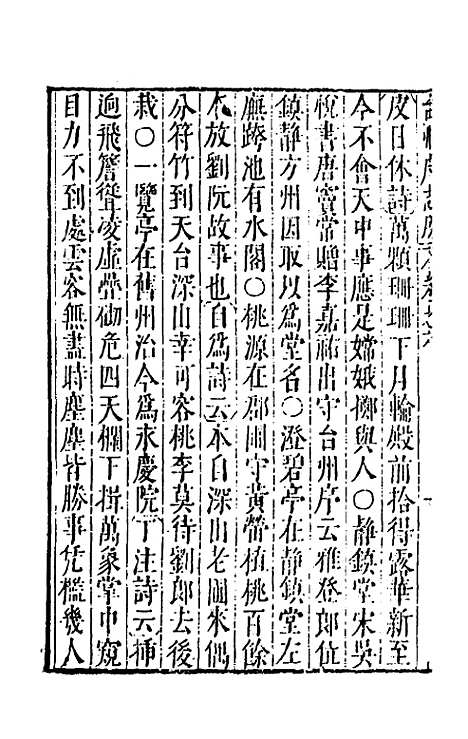 皮日休詩萬顆珊珊下月輪殿前拾得露華新至
今不會天中事應是嫦娥擲與人〇靜鎮堂宋吳
悅書唐竇常贈李嘉祐出守台州序云雅登郎位
鎮靜方州因取以爲堂名〇澄碧亭在靜鎮堂左
廡跨池有水閣〇桃源在郡圃守黃䇓植桃百餘
本放劉阮故事也自爲詩云本自深山老圃來偶
分符竹到天台深山幸可容桃李莫待劉郎去後
栽〇一覽亭在舊州治今爲永慶院丁注詩云插
迥飛簷聳凌虛疊砌危四天欄下揖萬象掌中窺
目力不到處雲容無盡時塵塵皆勝事凭檻幾人